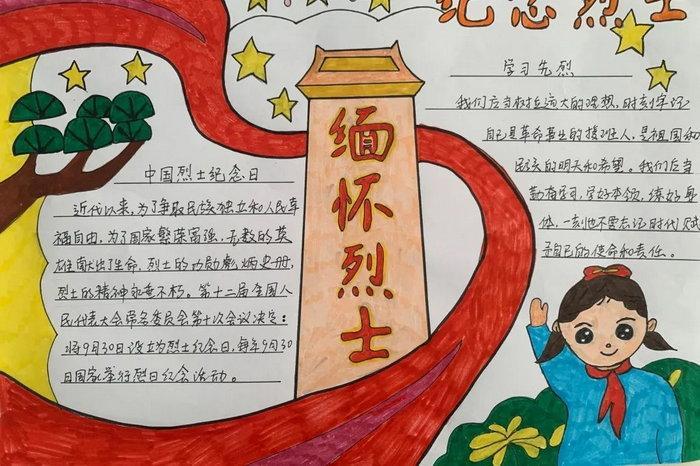 纪念烈士
中国烈士纪念日
近代以来,为了争取民族独立和人民幸
福自由,为了国家繁荣富强,无数的英
雄献出了生命,烈士的功勋彪炳史册,
烈士的精神永垂不朽。第十二届全国人
民代表大会常务委员会第十次会议决定:
将9月30日设立为烈士纪念日,每年9月30
日国家举行烈日纪念活动。
缅怀烈士
学习先烈
我们应当树立远大的理想,时刻牢记
自己是革命事业的接班人,是祖国和
民族的明天和希望。我们应当
勤奋学习,学好本领,练好身
体,一刻也不要忘记时代赋
予自己的使命和责任。